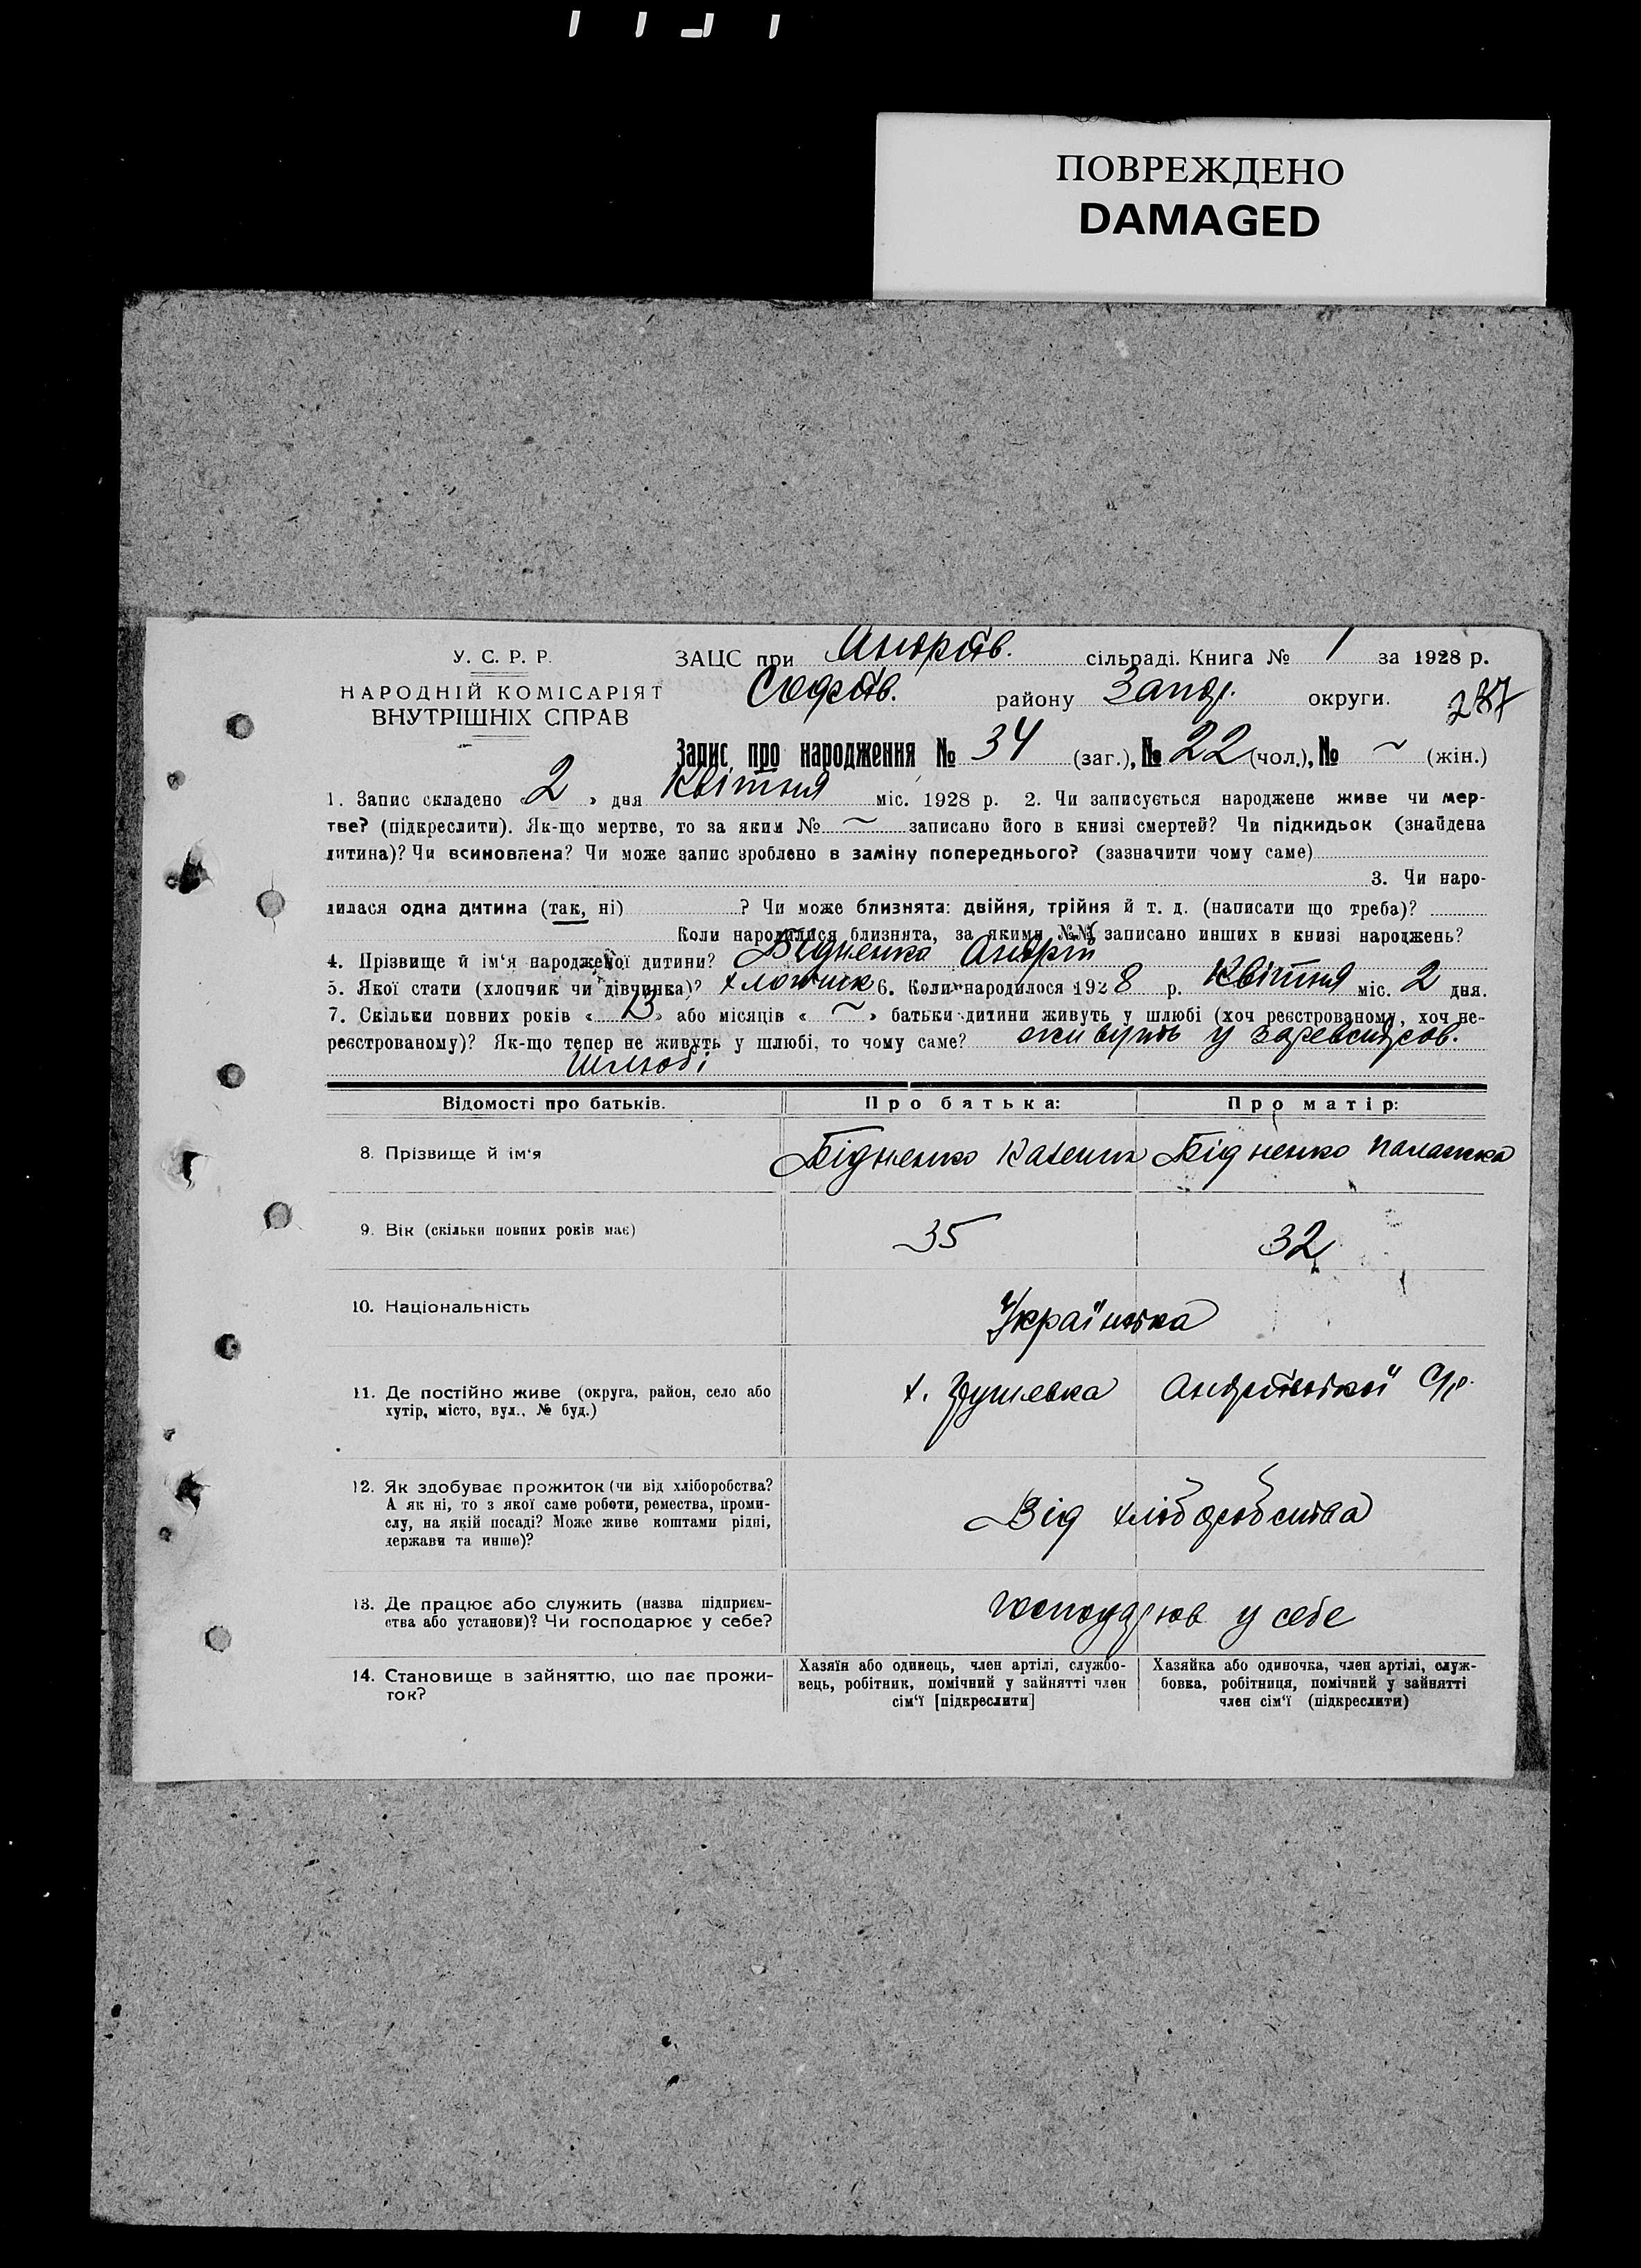 ПОВРЕЖДЕНО
DAMAGED
У. С. Р. Р.
НАРОДНІЙ КОМІСАРІЯТ
ВНУТРІШНІХ СПРАВ
ЗАЦС при Андріїв. сільраді. Книга № 1 за 1928 р.
Софіїв. району Запор. округи.
287
Запис про народження № 34 (заг.), № 22 (чол.), № ~ (жін.)
1. Запис складено « 2 » дня Квітня міс. 1928 р. 2. Чи записується народжене живе чи мер-
тве? (підкреслити). Як-що мертве, то за яким № ~ записано його в книзі смертей? Чи підкидьок (знайдена
дитина)? Чи всиновлена? Чи може запис зроблено в заміну попереднього? (зазначити чому саме)
3. Чи наро-
дилася одна дитина (так, ні) ? Чи може близнята: двійня, трійня й т. д. (написати що треба)?
Коли народилися близнята, за якими №№ записано инших в книзі народжень?
4. Прізвище й ім‘я народженої дитини? Бідненко Андрій
5. Якої стати (хлопчик чи дівчинка)? хлопчик 6. Коли народилося 1928 р. Квітня міс. 2 дня.
7. Скільки повних років « 13 » або місяців « ~ » батьки дитини живуть у шлюбі (хоч реєстрованому, хоч не-
реєстрованому)? Як-що тепер не живуть у шлюбі, то чому саме? живуть у
шлюбі
Відомості про батьків. Про батька: Про матір:
8. Прізвище й ім‘я Бідненко Бідненко Палажка
9. Вік (скільки повних років має) 35 32
10. Національність Українська
11. Де постійно живе (округа, район, село або
хутір, місто, вул., № буд.) х. Андріївської С/р.
12. Як здобуває прожиток (чи від хліборобства?
А як ні, то з якої саме роботи, ремества, проми-
слу, на якій посаді? Може живе коштами рідні,
держави та инше)? Від хліборобства
13. Де працює або служить (назва підприєм-
ства або установи)? Чи господарює у себе? у себе
14. Становище в зайняттю, що дає прожи-
ток?
Хазяїн або одинець, член артілі, службо-
вець, робітник, помічний у зайнятті член
сім‘ї [підкреслити]
Хазяйка або одиночка, член артілі, служ-
бовка, робітниця, помічний у зайнятті
член сім‘ї (підкреслити)